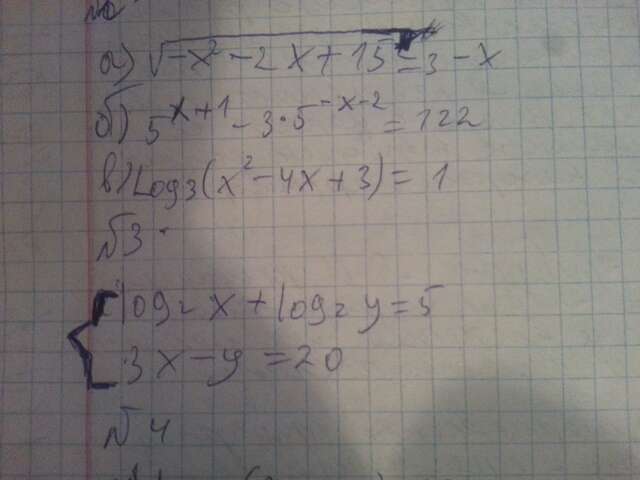 а) √-x²-2x+15 = 3-x
б) 5^x+1 - 3·5^-x-2 = 122
в) Log₃(x²-4x+3) = 1
№3
{ log₂ x + log₂ y = 5
3x - y = 20
№4